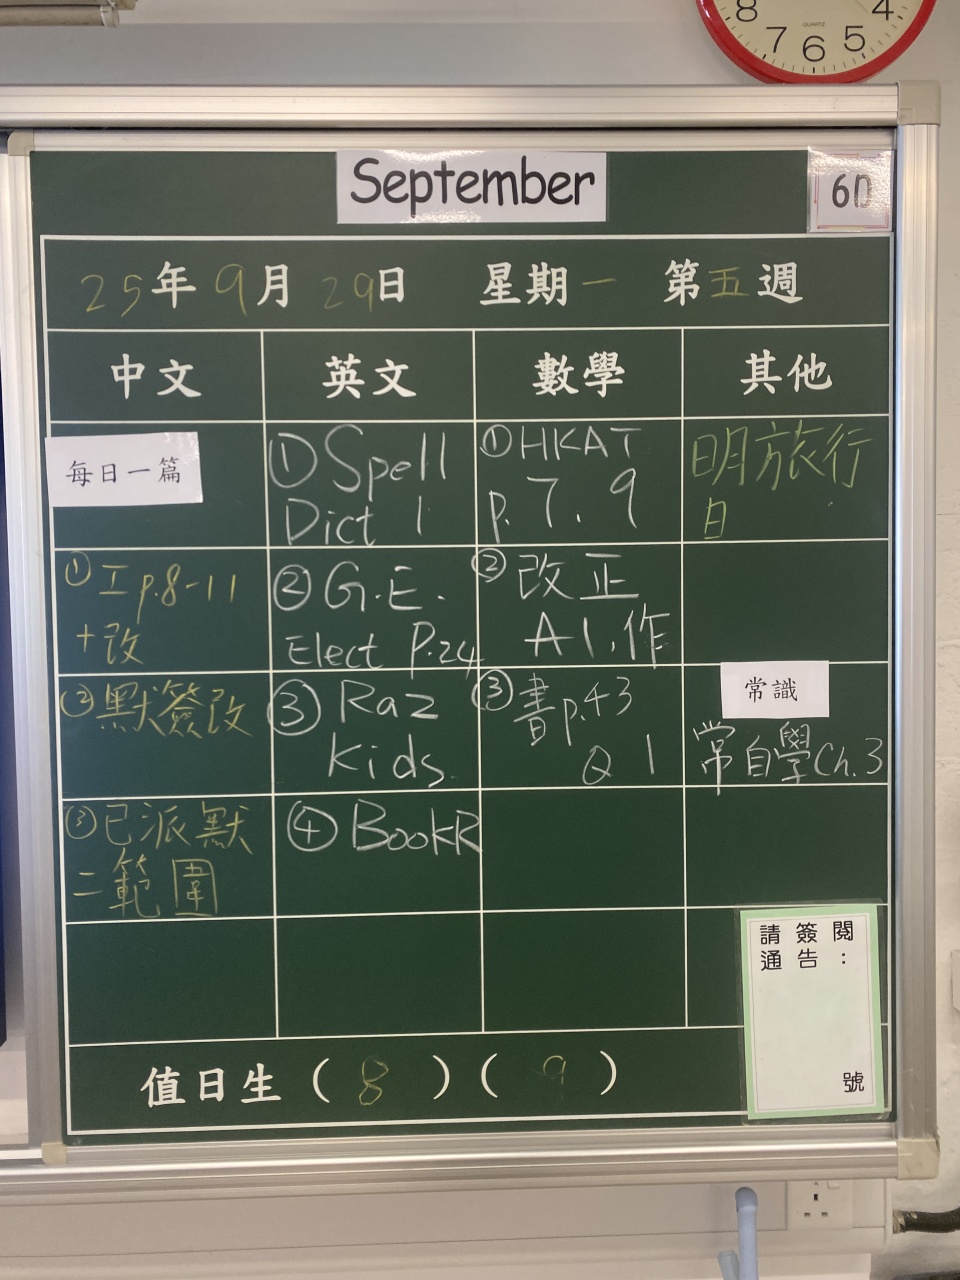 8 7 6 5 4
QUARTZ
September
6D
25年9月29日 星期一 第五週
中文 英文 數學 其他
每日一篇
①工p.8-11
+改
②默簽改
③已派默
二範圍
①Spell
Dict 1
②G.E.
Elect P.24
③Raz
Kids
④BookR
①HKAT
p.7.9
②改正
A1,作
③書p.43
Q1
明旅行
日
常識
常自學Ch.3
請簽閱
通告：
號
值日生（8）（9）